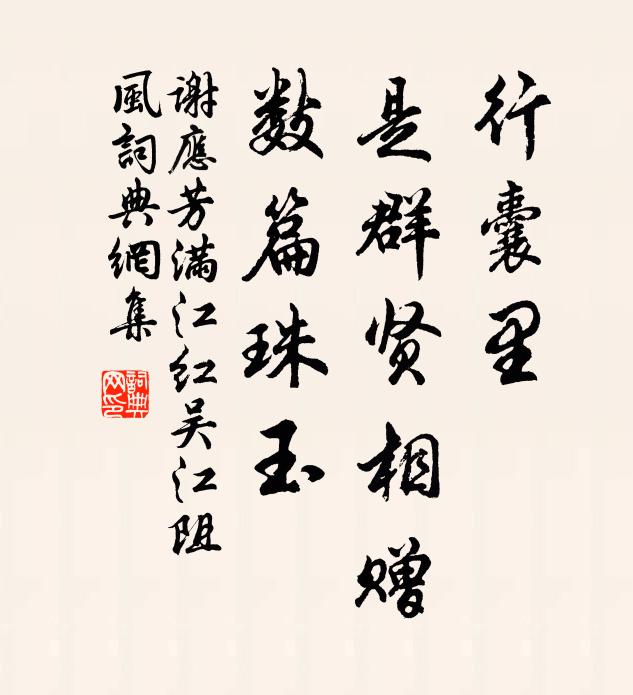 行囊里
是群贤相赠
数篇珠玉
谢應芳满江红吴江阻
風詞典網集
詞典
网印